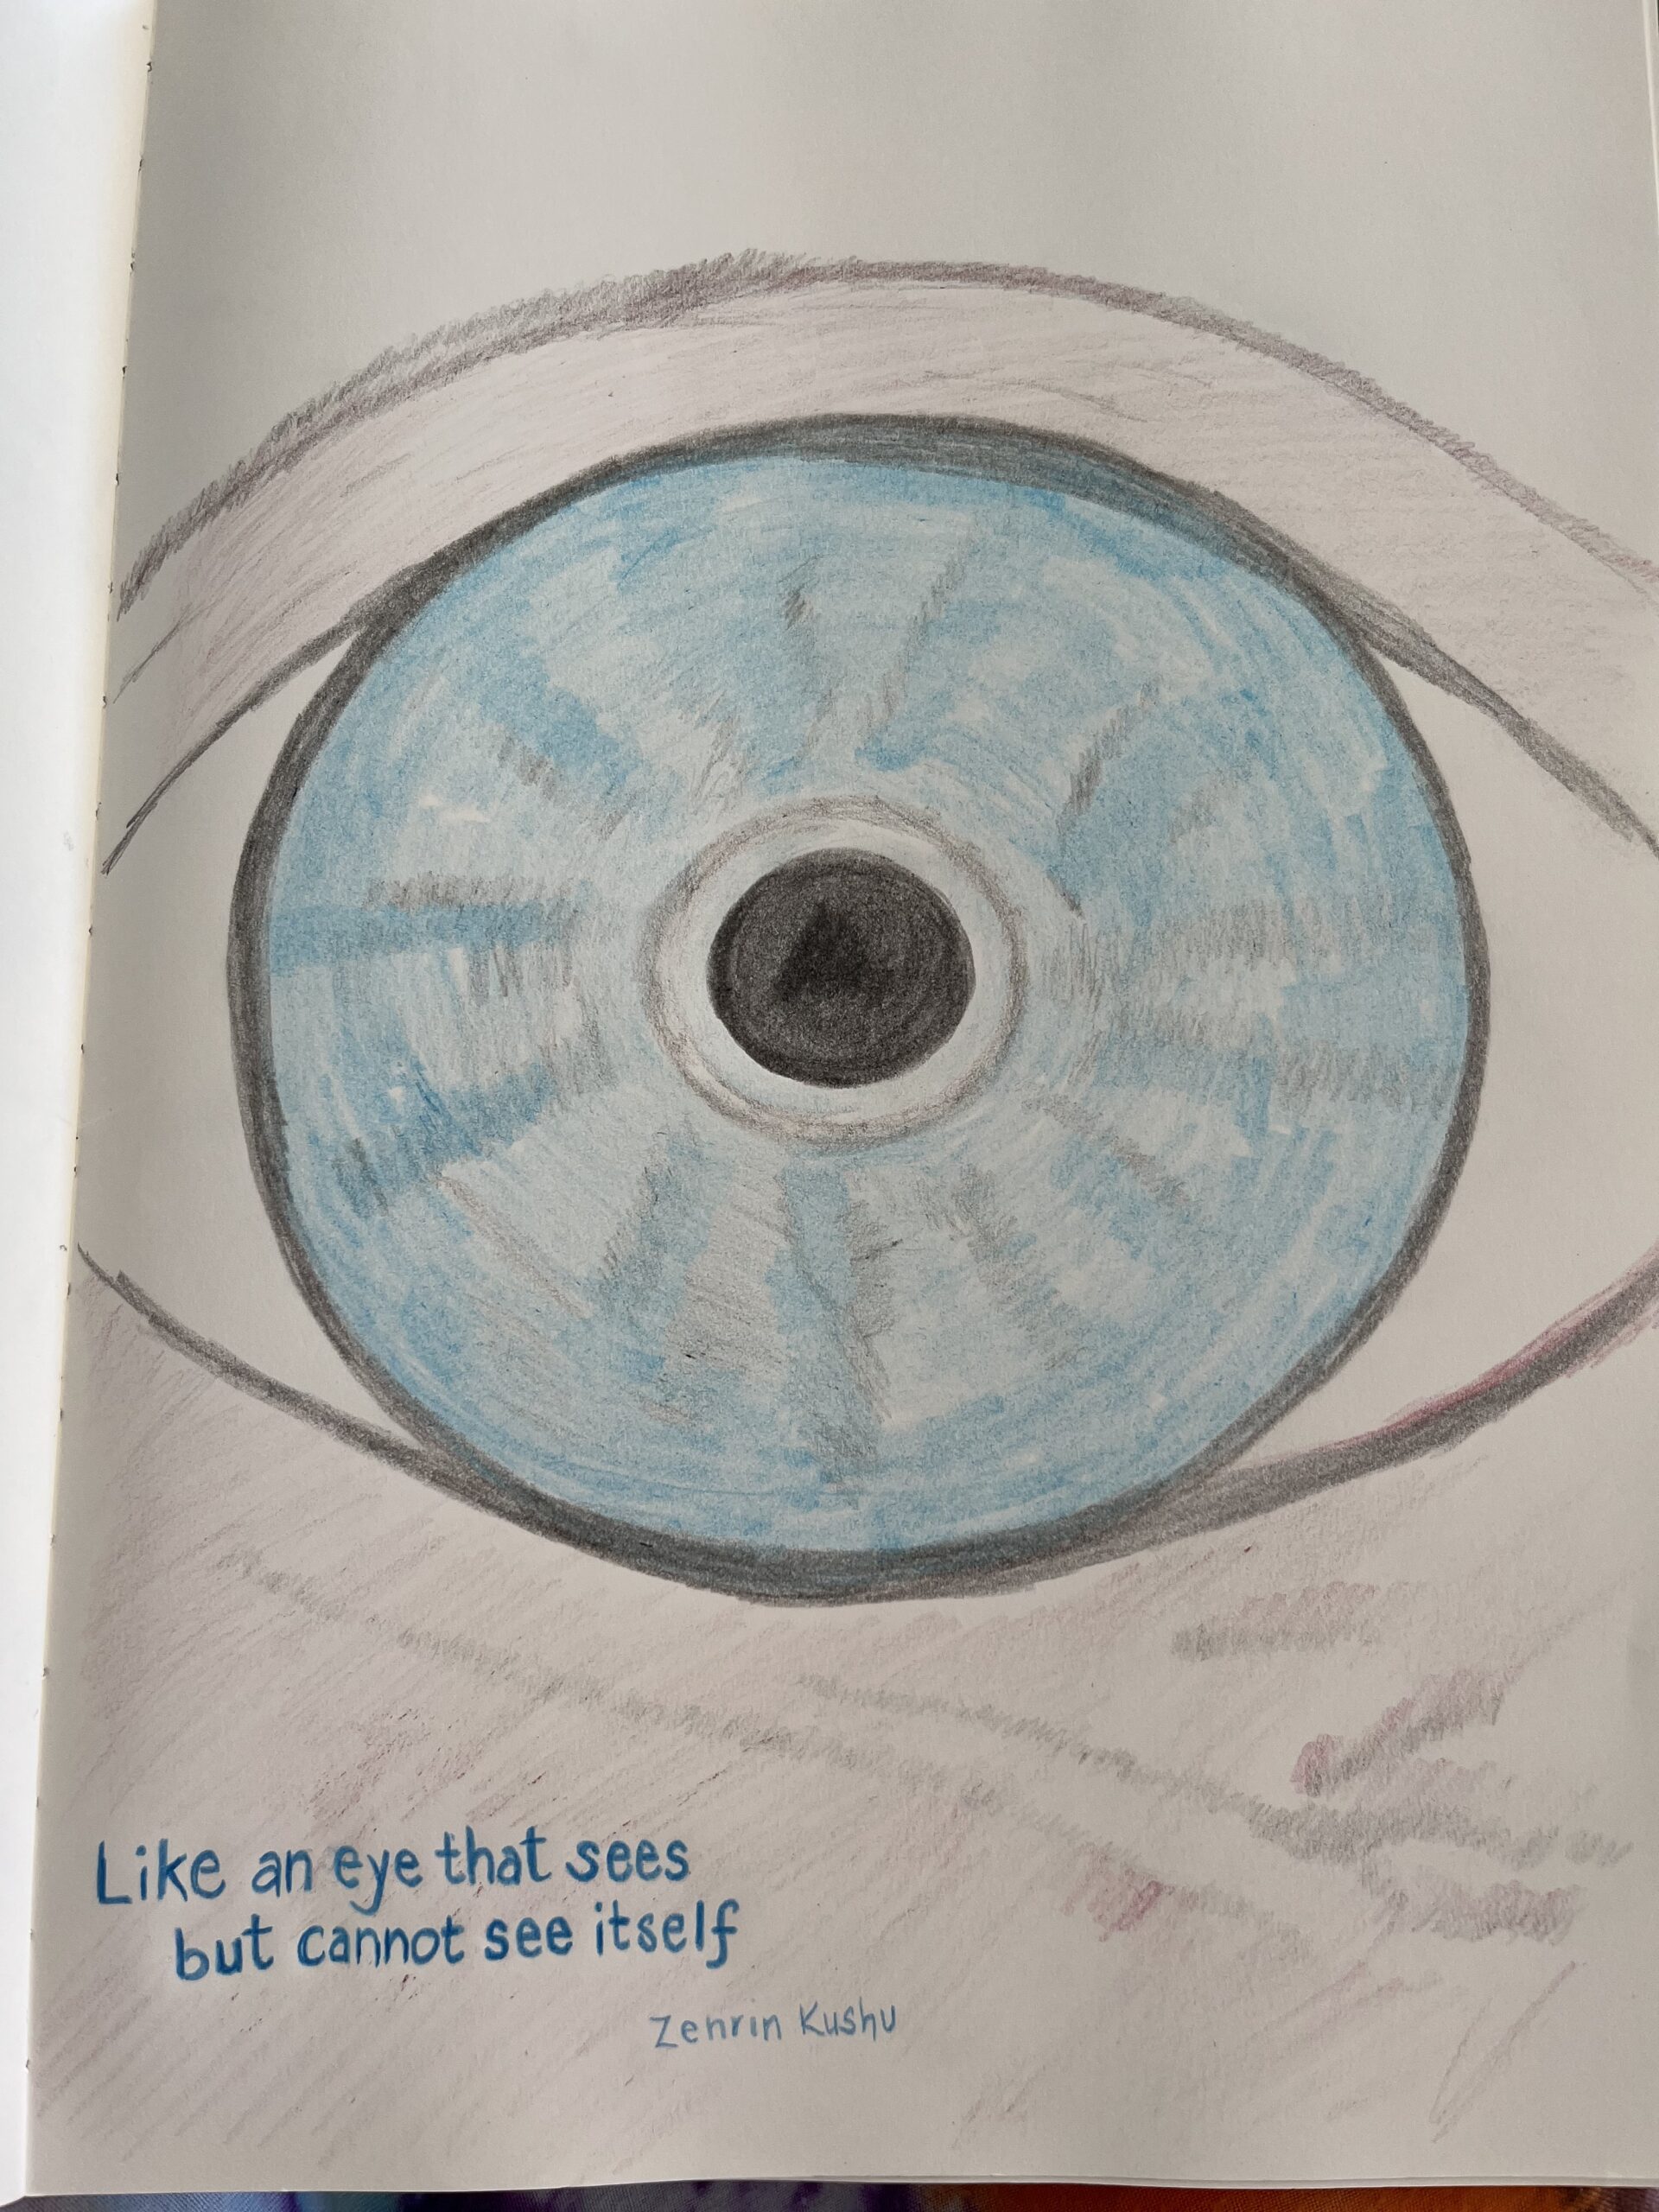 Like an eye that sees
but cannot see itself
Zenrin Kushu